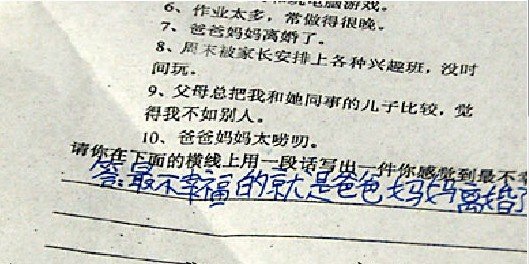 玩电脑游戏。
6、作业太多，常做得很晚。
7、爸爸妈妈离婚了。
8、周末被家长安排上各种兴趣班，没时
间玩。
9、父母总把我和她同事的儿子比较，觉
得我不如别人。
10、爸爸妈妈太唠叨。
请你在下面的横线上用一段话写出一件你感觉到最不幸
答：最不幸福的就是爸爸妈妈离婚了